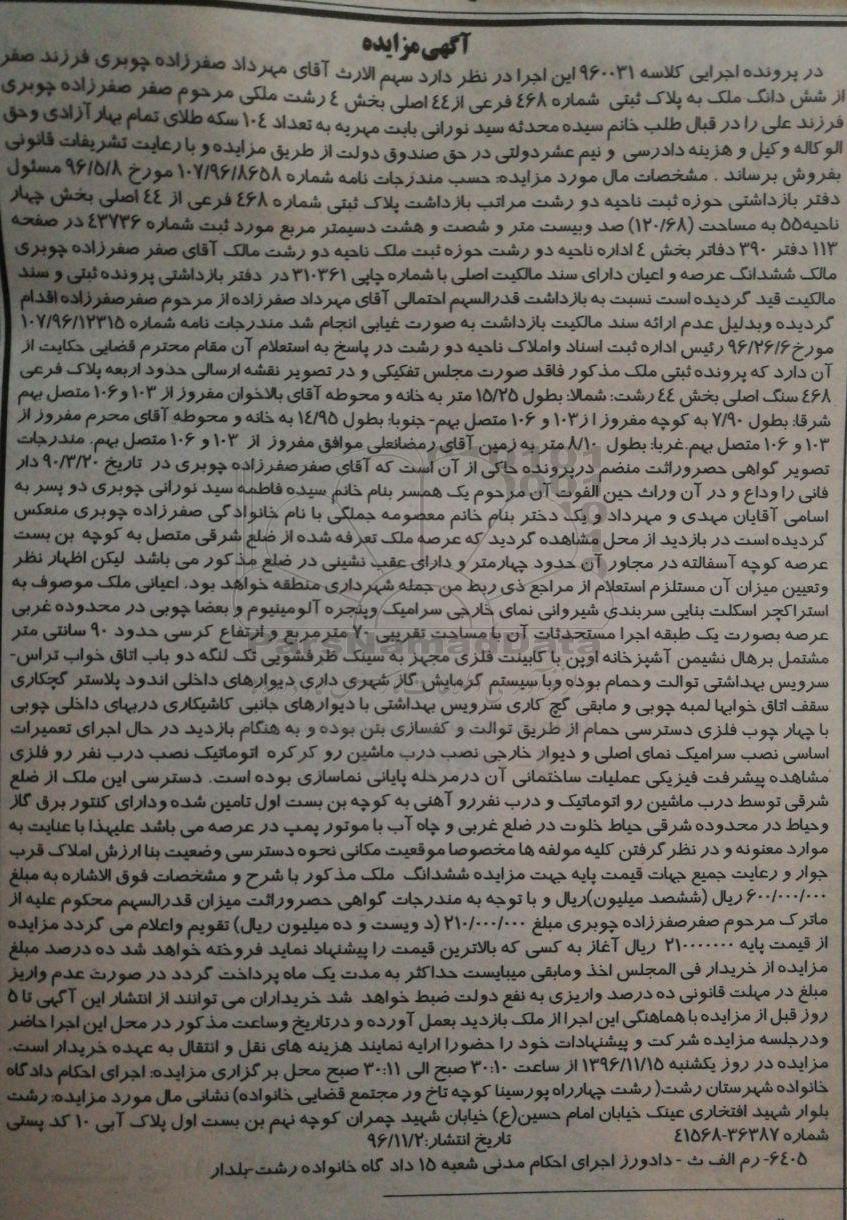 آگهی مزایده
در پرونده اجرایی کلاسه ۹۶۰۰۳۱ این اجرا در نظر دارد سهم الارث آقای مهرداد صفرزاده چوبری فرزند صفر
از شش دانگ ملک به پلاک ثبتی شماره ۴۶۸ فرعی از ۴۴ اصلی بخش ۴ رشت ملکی مرحوم صفر صفرزاده چوبری
فرزند علی را در قبال طلب خانم سیده محدثه سید نورانی بابت مهریه به تعداد ۱۰۴ سکه طلای تمام بهار آزادی وحق
الوکاله وکیل و هزینه دادرسی و نیم عشردولتی در حق صندوق دولت از طریق مزایده و با رعایت تشریفات قانونی
بفروش برساند . مشخصات مال مورد مزایده: حسب مندرجات نامه شماره ۱۰۷/۹۶/۸۶۵۸ مورخ ۹۶/۵/۸ مسئول
دفتر بازداشتی حوزه ثبت ناحیه دو رشت مراتب بازداشت پلاک ثبتی شماره ۴۶۸ فرعی از ۴۴ اصلی بخش چهار
ناحیه۵۵ به مساحت (۱۲۰/۶۸) صد وبیست متر و شصت و هشت دسیمتر مربع مورد ثبت شماره ۴۳۷۳۶ در صفحه
۱۱۳ دفتر ۳۹۰ دفاتر بخش ۴ اداره ناحیه دو رشت حوزه ثبت ملک ناحیه دو رشت مالک آقای صفر صفرزاده چوبری
مالک ششدانگ عرصه و اعیان دارای سند مالکیت اصلی با شماره چاپی ۳۱۰۳۶۱ در دفتر بازداشتی پرونده ثبتی و سند
مالکیت قید گردیده است نسبت به بازداشت قدرالسهم احتمالی آقای مهرداد صفرزاده از مرحوم صفرصفرزاده اقدام
گردیده وبدلیل عدم ارائه سند مالکیت بازداشت به صورت غیابی انجام شد مندرجات نامه شماره ۱۰۷/۹۶/۱۲۳۱۵
مورخ۹۶/۲۶/۶ رئیس اداره ثبت اسناد واملاک ناحیه دو رشت در پاسخ به استعلام آن مقام محترم قضایی حکایت از
آن دارد که پرونده ثبتی ملک مذکور فاقد صورت مجلس تفکیکی و در تصویر نقشه ارسالی حدود اربعه پلاک فرعی
۴۶۸ سنگ اصلی بخش ۴۴ رشت: شمالا: بطول ۱۵/۲۵ متر به خانه و محوطه آقای بالاخوان مفروز از ۱۰۳ و۱۰۶ متصل بهم
شرقا: بطول ۷/۹۰ به کوچه مفروز از۱۰۳ و ۱۰۶ متصل بهم- جنوبا: بطول ۱۴/۹۵ به خانه و محوطه آقای محرم مفروز از
۱۰۳ و ۱۰۶ متصل بهم.غربا: بطول ۸/۱۰ متر به زمین آقای رمضانعلی موافق مفروز از ۱۰۳ و ۱۰۶ متصل بهم. مندرجات
تصویر گواهی حصروراثت منضم درپرونده حاکی از آن است که آقای صفرصفرزاده چوبری در تاریخ ۹۰/۳/۲۰ دار
فانی را وداع و در آن وراث حین الفوت آن مرحوم یک همسر بنام خانم سیده فاطمه سید نورانی چوبری دو پسر به
اسامی آقایان مهدی و مهرداد و یک دختر بنام خانم معصومه جملگی با نام خانوادگی صفرزاده چوبری منعکس
گردیده است در بازدید از محل مشاهده گردید که عرصه ملک تعرفه شده از ضلع شرقی متصل به کوچه بن بست
عرصه کوچه آسفالته در مجاور آن حدود چهارمتر و دارای عقب نشینی در ضلع مذکور می باشد لیکن اظهار نظر
وتعیین میزان آن مستلزم استعلام از مراجع ذی ربط من جمله شهرداری منطقه خواهد بود. اعیانی ملک موصوف به
استراکچر اسکلت بنایی سربندی شیروانی نمای خارجی سرامیک وپنجره آلومینیوم و بعضا چوبی در محدوده غربی
عرصه بصورت یک طبقه اجرا مستحدثات آن با مساحت تقریبی ۷۰ مترمربع و ارتفاع کرسی حدود ۹۰ سانتی متر
مشتمل برهال نشیمن آشپزخانه اوپن با کابینت فلزی مجهز به سینک ظرفشویی تک لنگه دو باب اتاق خواب تراس-
سرویس بهداشتی توالت وحمام بوده وبا سیستم گرمایش گاز شهری داری دیوارهای داخلی اندود پلاستر گچکاری
سقف اتاق خوابها لمبه چوبی و مابقی گچ کاری سرویس بهداشتی با دیوارهای جانبی کاشیکاری دربهای داخلی چوبی
با چهار چوب فلزی دسترسی حمام از طریق توالت و کفسازی بتن بوده و به هنگام بازدید در حال اجرای تعمیرات
اساسی نصب سرامیک نمای اصلی و دیوار خارجی نصب درب ماشین رو کرکره اتوماتیک نصب درب نفر رو فلزی
مشاهده پیشرفت فیزیکی عملیات ساختمانی آن درمرحله پایانی نماسازی بوده است. دسترسی این ملک از ضلع
شرقی توسط درب ماشین رو اتوماتیک و درب نفررو آهنی به کوچه بن بست اول تامین شده ودارای کنتور برق گاز
وحیاط در محدوده شرقی حیاط خلوت در ضلع غربی و چاه آب با موتور پمپ در عرصه می باشد علیهذا با عنایت به
موارد معنونه و در نظر گرفتن کلیه مولفه ها مخصوصا موقعیت مکانی نحوه دسترسی وضعیت بنا ارزش املاک قرب
جوار و رعایت جمیع جهات قیمت پایه جهت مزایده ششدانگ ملک مذکور با شرح و مشخصات فوق الاشاره به مبلغ
۶۰۰/۰۰۰/۰۰۰ ریال (ششصد میلیون)ریال و با توجه به مندرجات گواهی حصروراثت میزان قدرالسهم محکوم علیه از
ماترک مرحوم صفرصفرزاده چوبری مبلغ ۲۱۰/۰۰۰/۰۰۰ (د ویست و ده میلیون ریال) تقویم واعلام می گردد مزایده
از قیمت پایه ۲۱۰۰۰۰۰۰۰ ریال آغاز به کسی که بالاترین قیمت را پیشنهاد نماید فروخته خواهد شد ده درصد مبلغ
مزایده از خریدار فی المجلس اخذ ومابقی میبایست حداکثر به مدت یک ماه پرداخت گردد در صورت عدم واریز
مبلغ در مهلت قانونی ده درصد واریزی به نفع دولت ضبط خواهد شد خریداران می توانند از انتشار این آگهی تا ۵
روز قبل از مزایده با هماهنگی این اجرا از ملک بازدید بعمل آورده و درتاریخ وساعت مذکور در محل این اجرا حاضر
ودرجلسه مزایده شرکت و پیشنهادات خود را حضورا ارایه نمایند هزینه های نقل و انتقال به عهده خریدار است.
مزایده در روز یکشنبه ۱۳۹۶/۱۱/۱۵ از ساعت ۳۰:۱۰ صبح الی ۳۰:۱۱ صبح محل برگزاری مزایده: اجرای احکام دادگاه
خانواده شهرستان رشت( رشت چهارراه پورسینا کوچه تاخ ور مجتمع قضایی خانواده) نشانی مال مورد مزایده: رشت
بلوار شهید افتخاری عینک خیابان امام حسین(ع) خیابان شهید چمران کوچه نهم بن بست اول پلاک آبی ۱۰ کد پستی
شماره ۳۶۳۸۷-۴۱۵۶۸ تاریخ انتشار:۹۶/۱۱/۲
۶۴۰۵- رم الف ث - دادورز اجرای احکام مدنی شعبه ۱۵ داد گاه خانواده رشت-بلدار